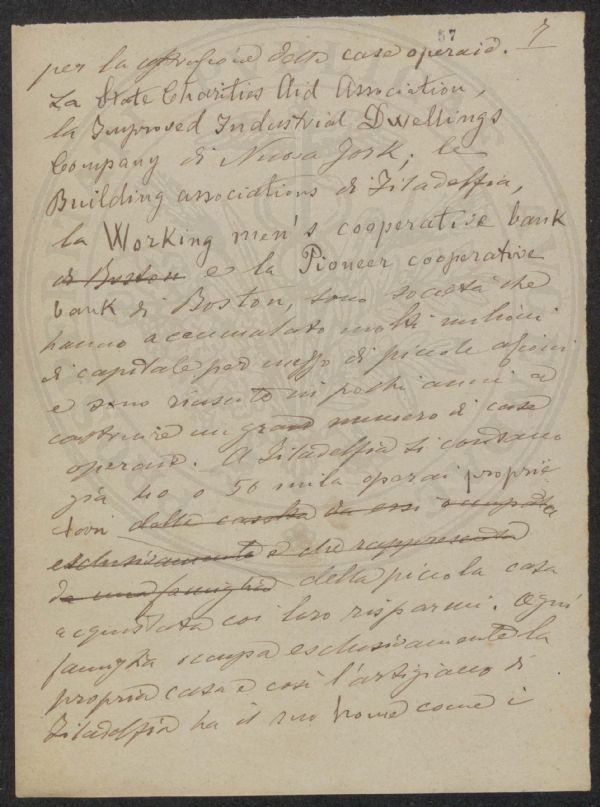 57
7
per la costruzione delle case operaie.
La State Charities Aid Association,
la Improved Industrial Dwellings
Company di Nuova York, le
Building associations di Filadelfia,
la Working men's cooperative bank
di Boston e la Pioneer cooperative
bank di Boston, sono società che
hanno accumulato molti milioni
di capitale per mezzo di piccole azioni
e sono riuscite in pochi anni a
costruire un gran numero di case
operaie. A Filadelfia si contano
già 40 o 50 mila operai proprie
tari delle casette da essi occupate
esclusivamente e che rappresenta
da una famiglia della piccola casa
acquistata coi loro risparmi. Ogni
famiglia occupa esclusivamente la
propria casa e così l'artigiano di
Filadelfia ha il suo home come i